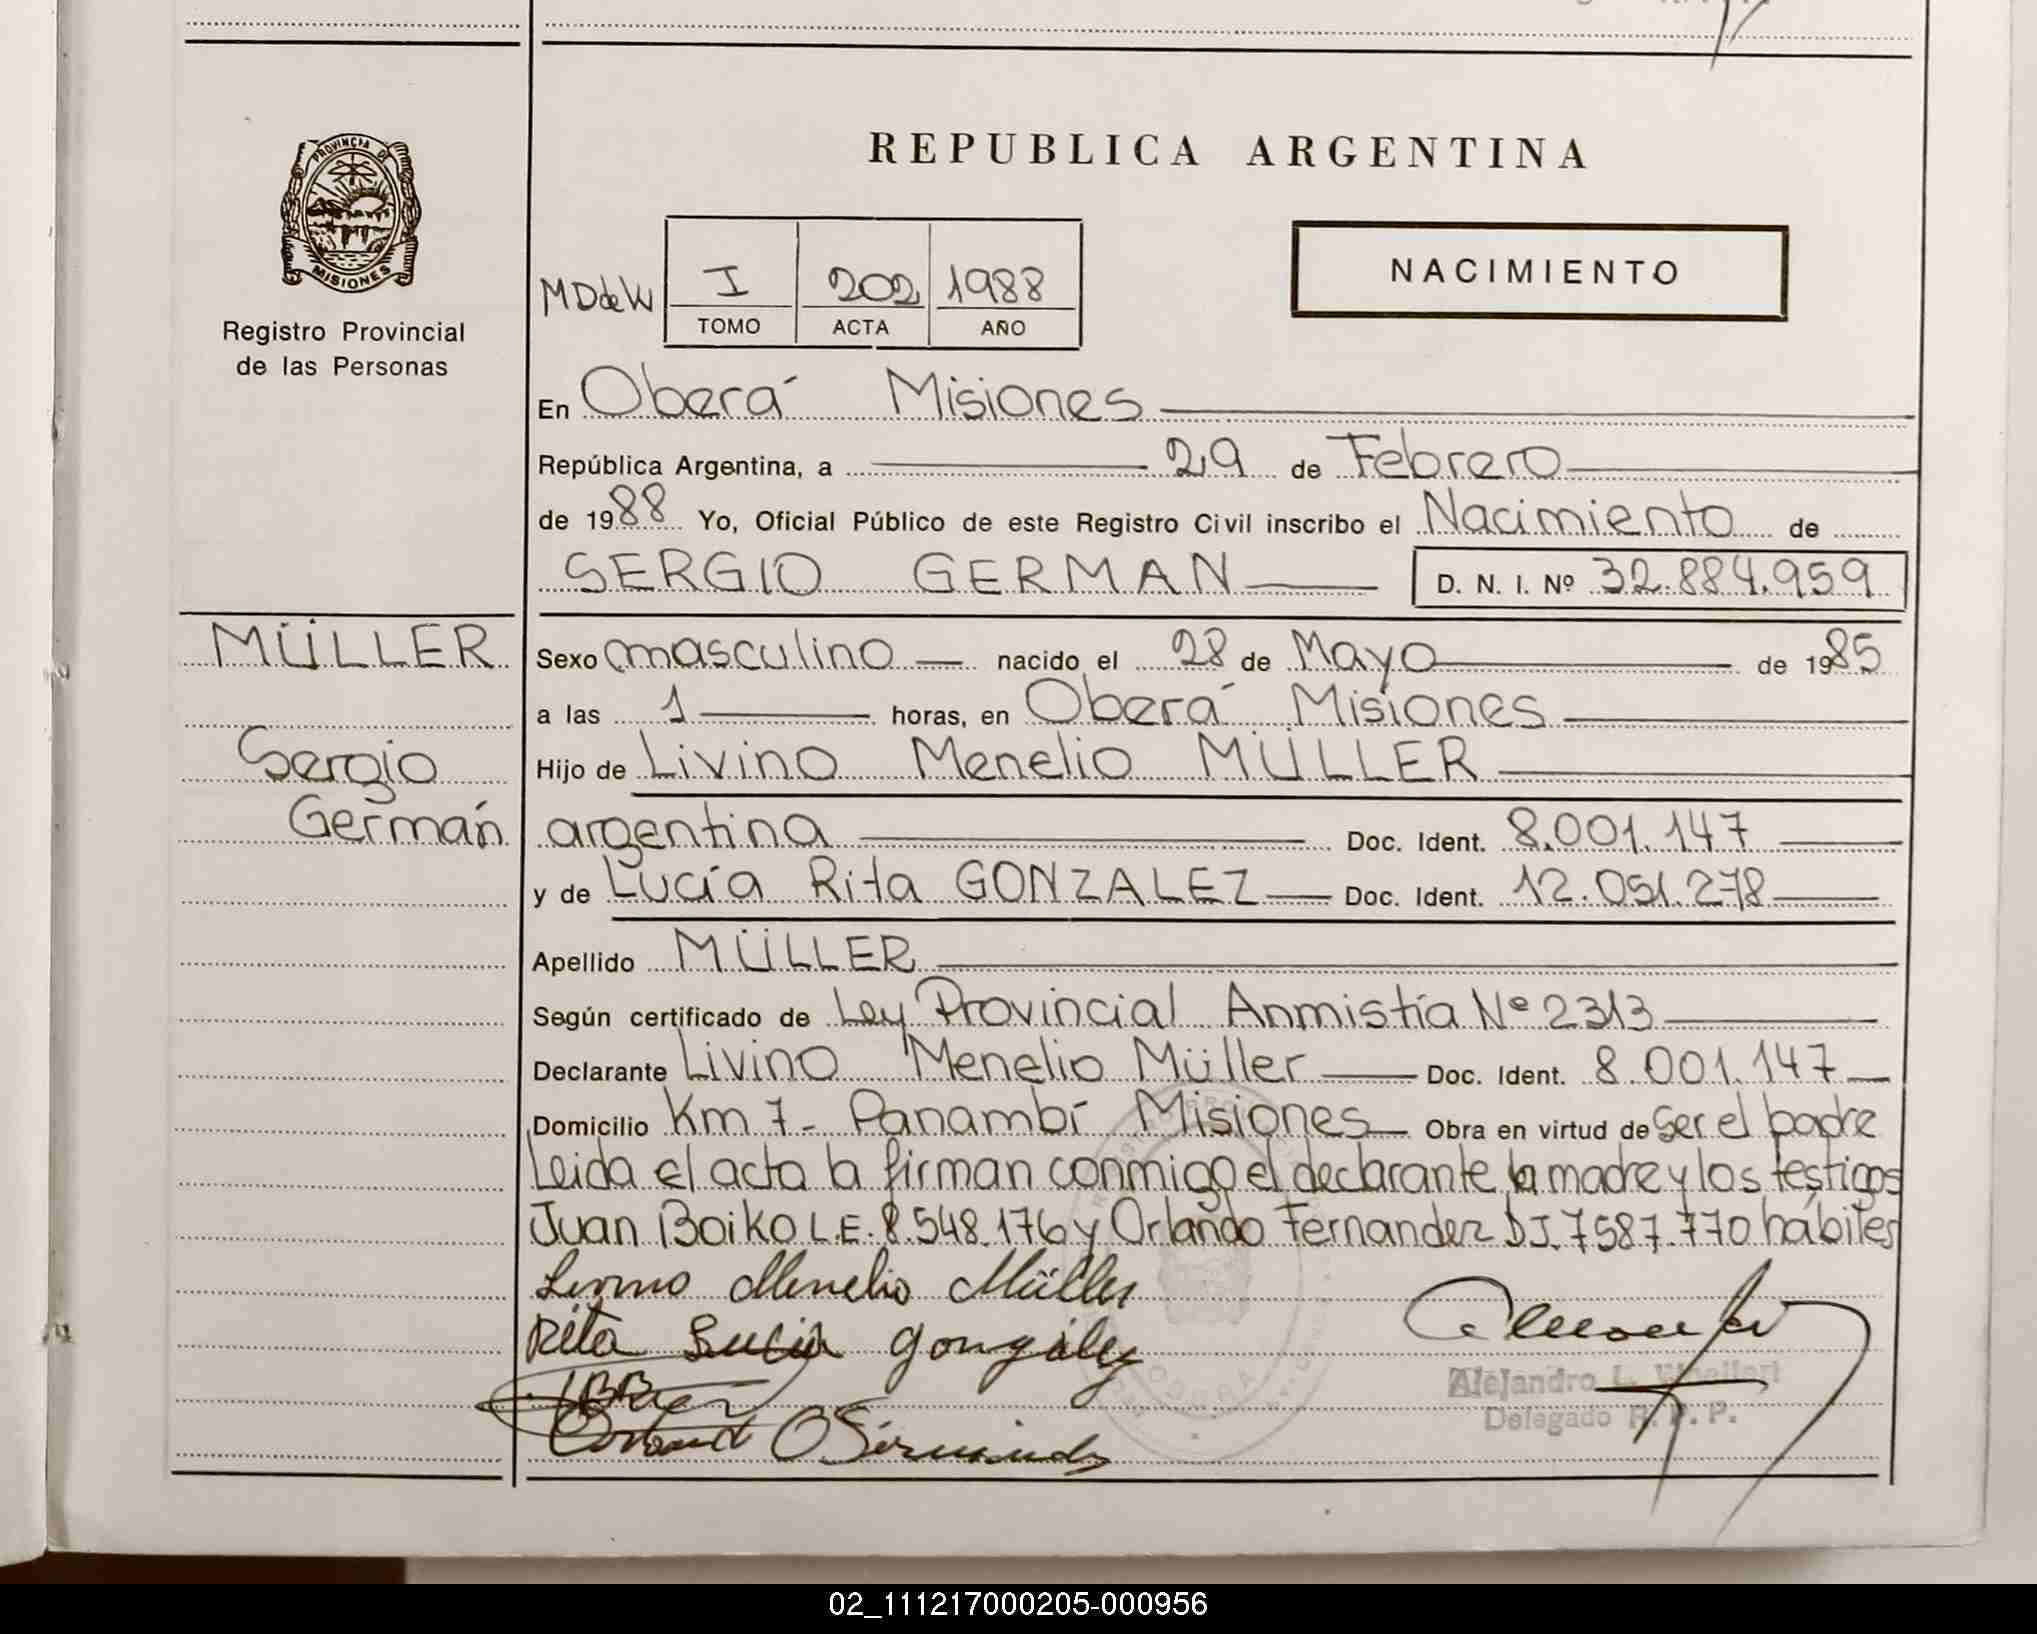 REPUBLICA ARGENTINA
PROVINCIA DE
MISIONES
Registro Provincial
de las Personas
NACIMIENTO
MD de W
I 202 1988
TOMO ACTA AÑO
En Oberá Misiones
República Argentina, a 29 de Febrero
de 1988 Yo, Oficial Público de este Registro Civil inscribo el Nacimiento de
SERGIO GERMAN D. N. I. Nº 32.884.959
MÜLLER
Sergio
Germán
Sexo masculino nacido el 28 de Mayo de 1985
a las 1 horas, en Oberá Misiones
Hijo de Livino Menelio MÜLLER
argentina Doc. Ident. 8.001.147
y de Lucía Rita GONZALEZ Doc. Ident. 12.051.278
Apellido MÜLLER
Según certificado de Ley Provincial Anmistía Nº 2313
Declarante Livino Menelio Müller Doc. Ident. 8.001.147
Domicilio Km 7- Panambí Misiones Obra en virtud de ser el padre
Leida el acta la firman conmigo el declarante la madre y los testigos
Juan Boiko L.E. 8.548.176 y Orlando Fernandez DJ. 7587.770 hábiles
Livino Menelio Müller
Rita Lucia González
Alejandro L.
Delegado R. P. P.
02_111217000205-000956